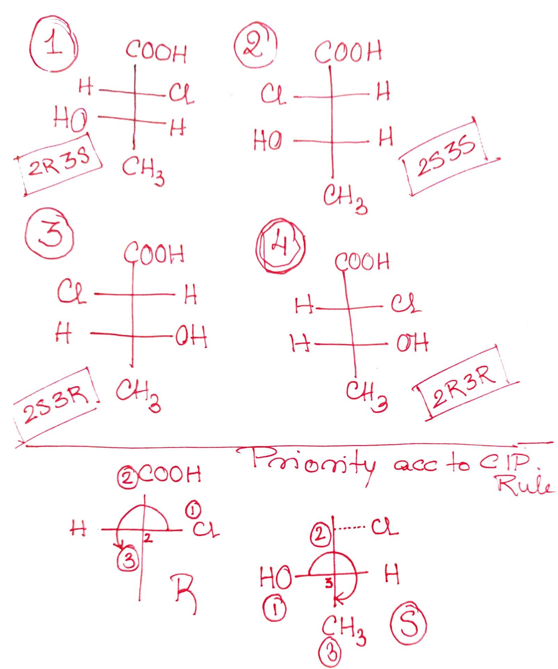 1
COOH
H Cl
HO H
CH3
2R3S
2
COOH
Cl H
HO H
CH3
2S3S
3
COOH
Cl H
H OH
CH3
2S3R
4
COOH
H Cl
H OH
CH3
2R3R
Priority acc to CIP
Rule
2 COOH
1
H 2 Cl
3
R
2 Cl
HO 3 H
1
CH3 S
3